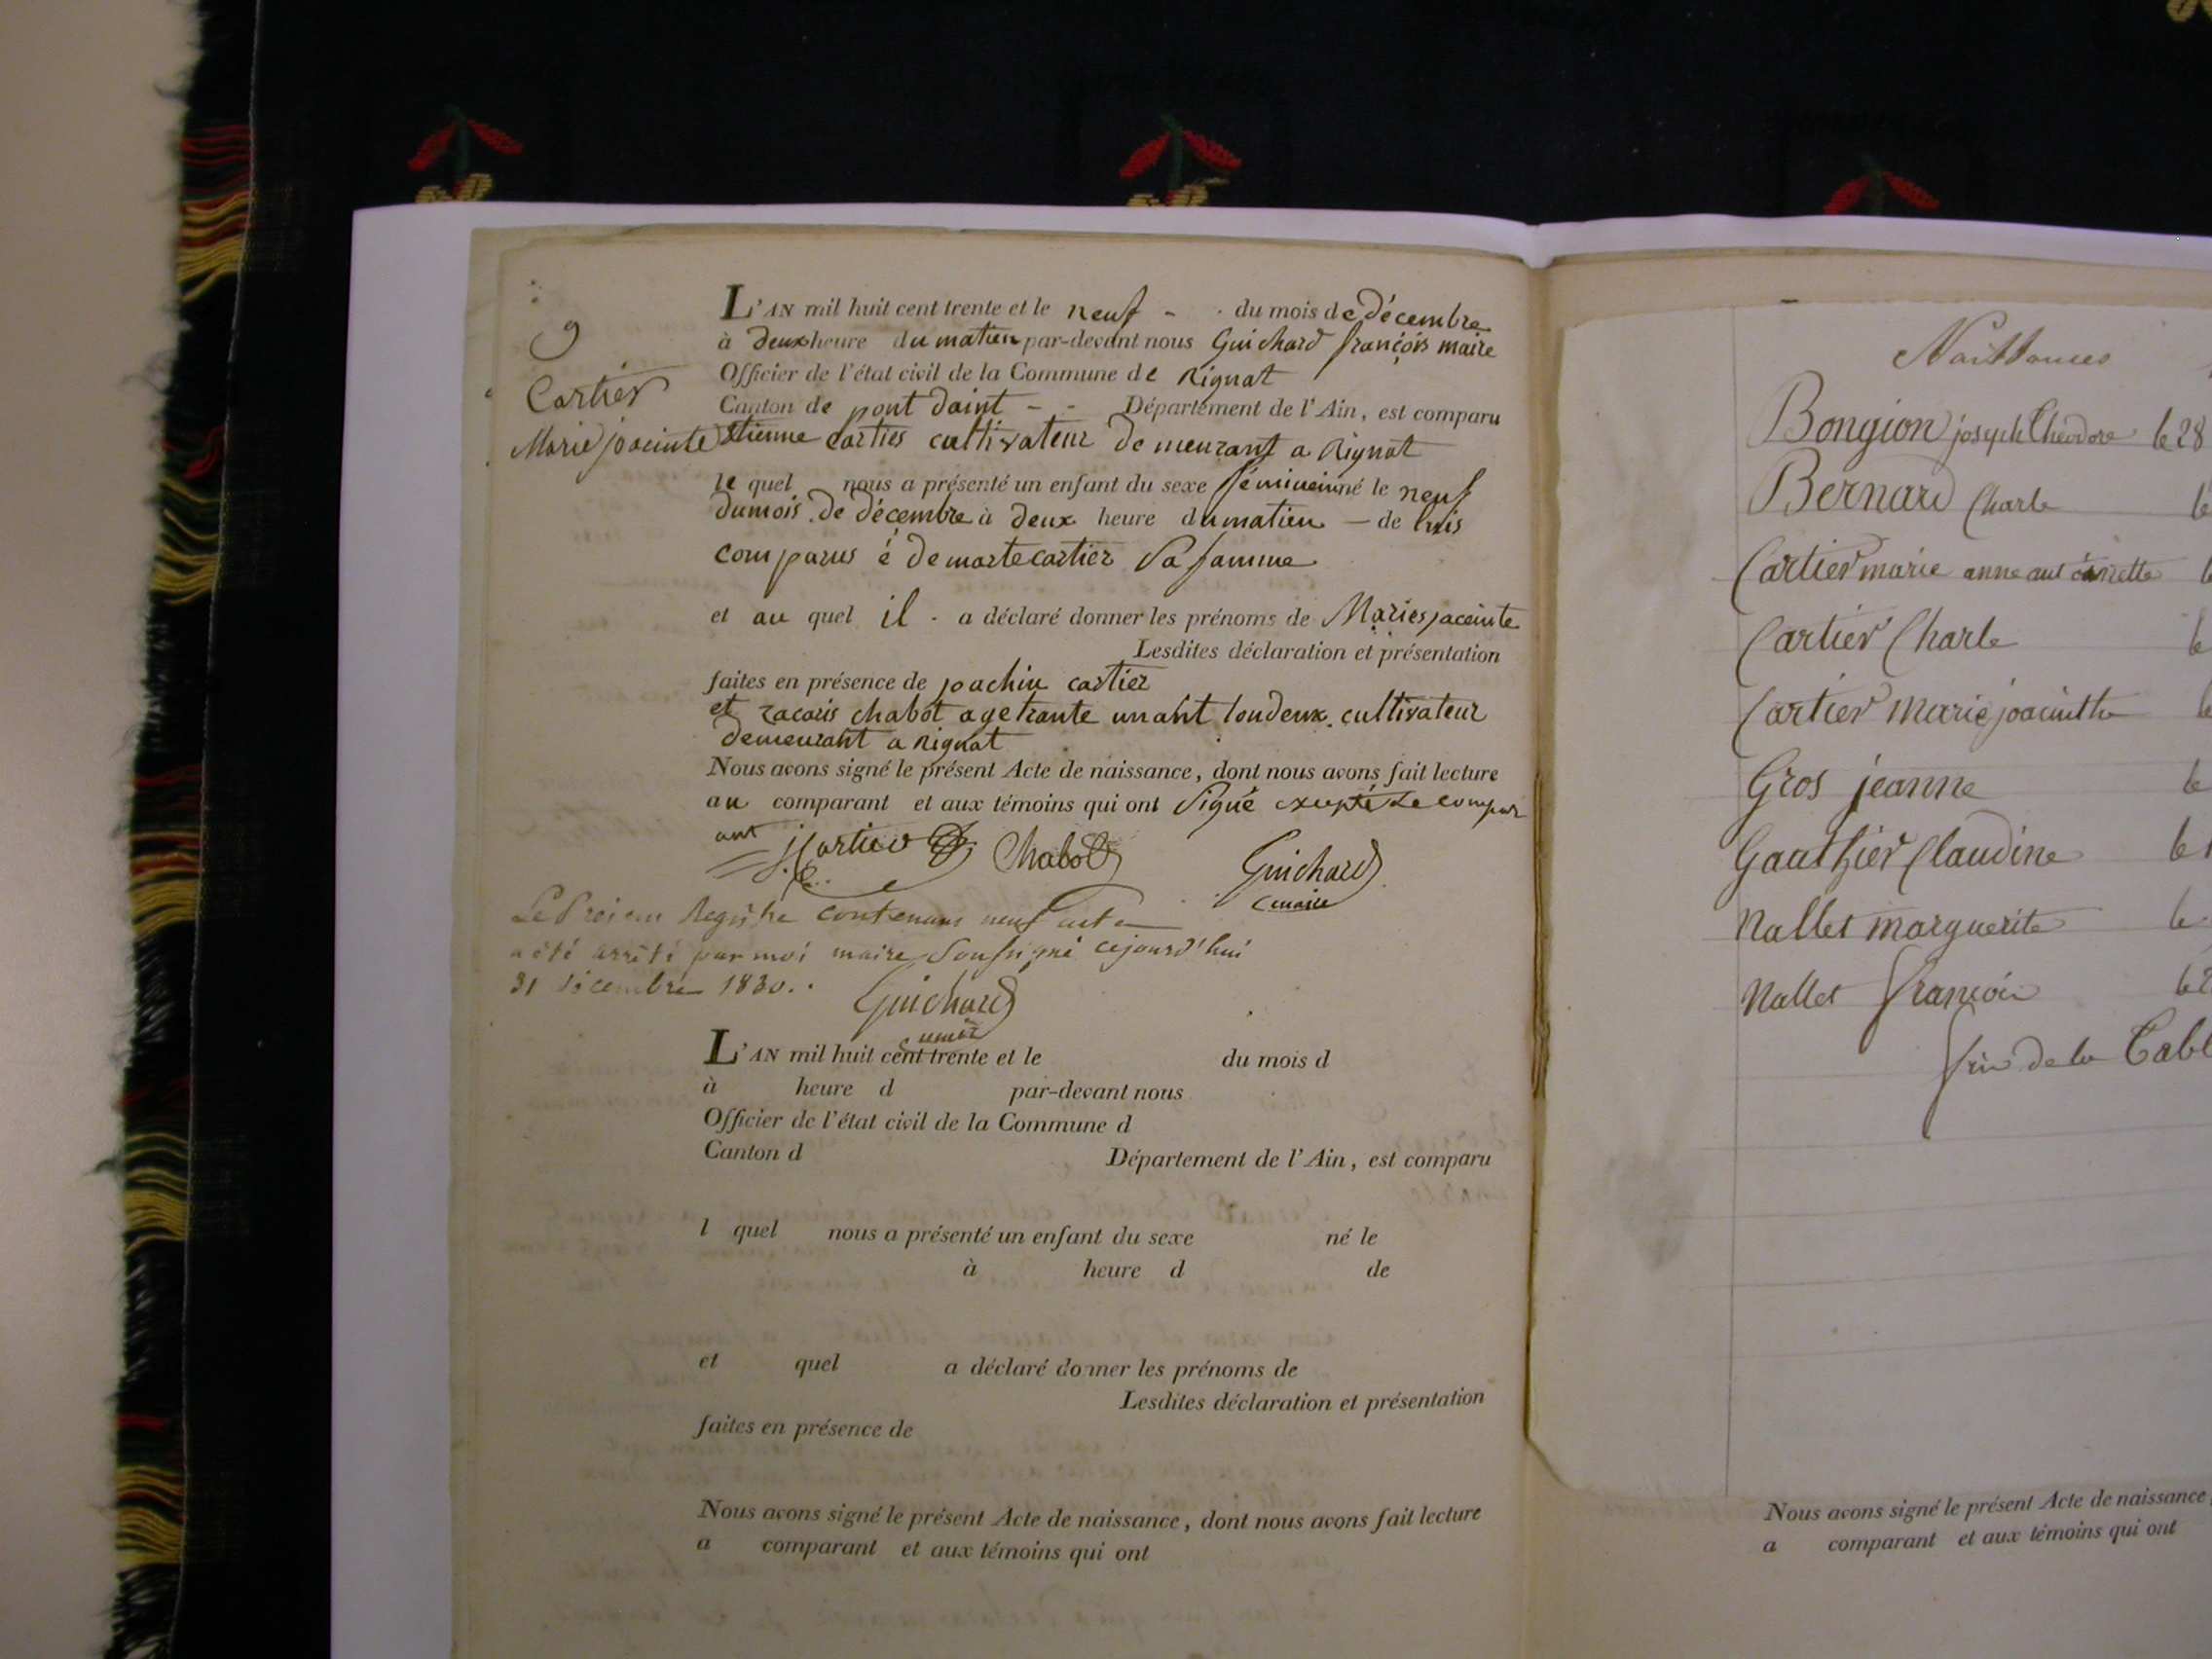 9
Cartier
Marie joacinte
L'AN mil huit cent trente et le neuf - du mois de décembre
à deux heure du matien par-devant nous Guichard françois maire
Officier de l'état civil de la Commune de Rignat
Canton de pont daint - - Département de l'Ain, est comparu
Etienne cartier cultivateur demeurant a Rignat
le quel nous a présenté un enfant du sexe féminein né le neuf
du mois de décembre à deux heure du matien - de luis
comparus é de marte cartier sa famme
et au quel il - a déclaré donner les prénoms de Marie jaceinte
Lesdites déclaration et présentation
faites en présence de joachin cartier
et zacaris chabot age trante un ant tous deux cultivateur
demeurant a Rignat
Nous avons signé le présent Acte de naissance, dont nous avons fait lecture
au comparant et aux témoins qui ont signé exepté le compar
ant J Cartier Chabot Guichard
maire
Le Registre contenant neuf acte
a été arrêté par moi maire soussigné cejourd'hui
31 décembre 1830.
Guichard
maire
L'AN mil huit cent trente et le du mois d
à heure d par-devant nous
Officier de l'état civil de la Commune d
Canton d Département de l'Ain, est comparu
l quel nous a présenté un enfant du sexe né le
à heure d de
et quel a déclaré donner les prénoms de
Lesdites déclaration et présentation
faites en présence de
Nous avons signé le présent Acte de naissance, dont nous avons fait lecture
a comparant et aux témoins qui ont
Naissances
Bongion joseph Théodore le 28
Bernard Charle le
Cartier marie anne le
Cartier Charle le
Cartier marie joacinthe le
Gros jeanne le
Gauthier Claudine le 1
Nallet marguerite le
Nallet françois le 2
fin de la Tabl
Nous avons signé le présent Acte de naissance,
a comparant et aux témoins qui ont